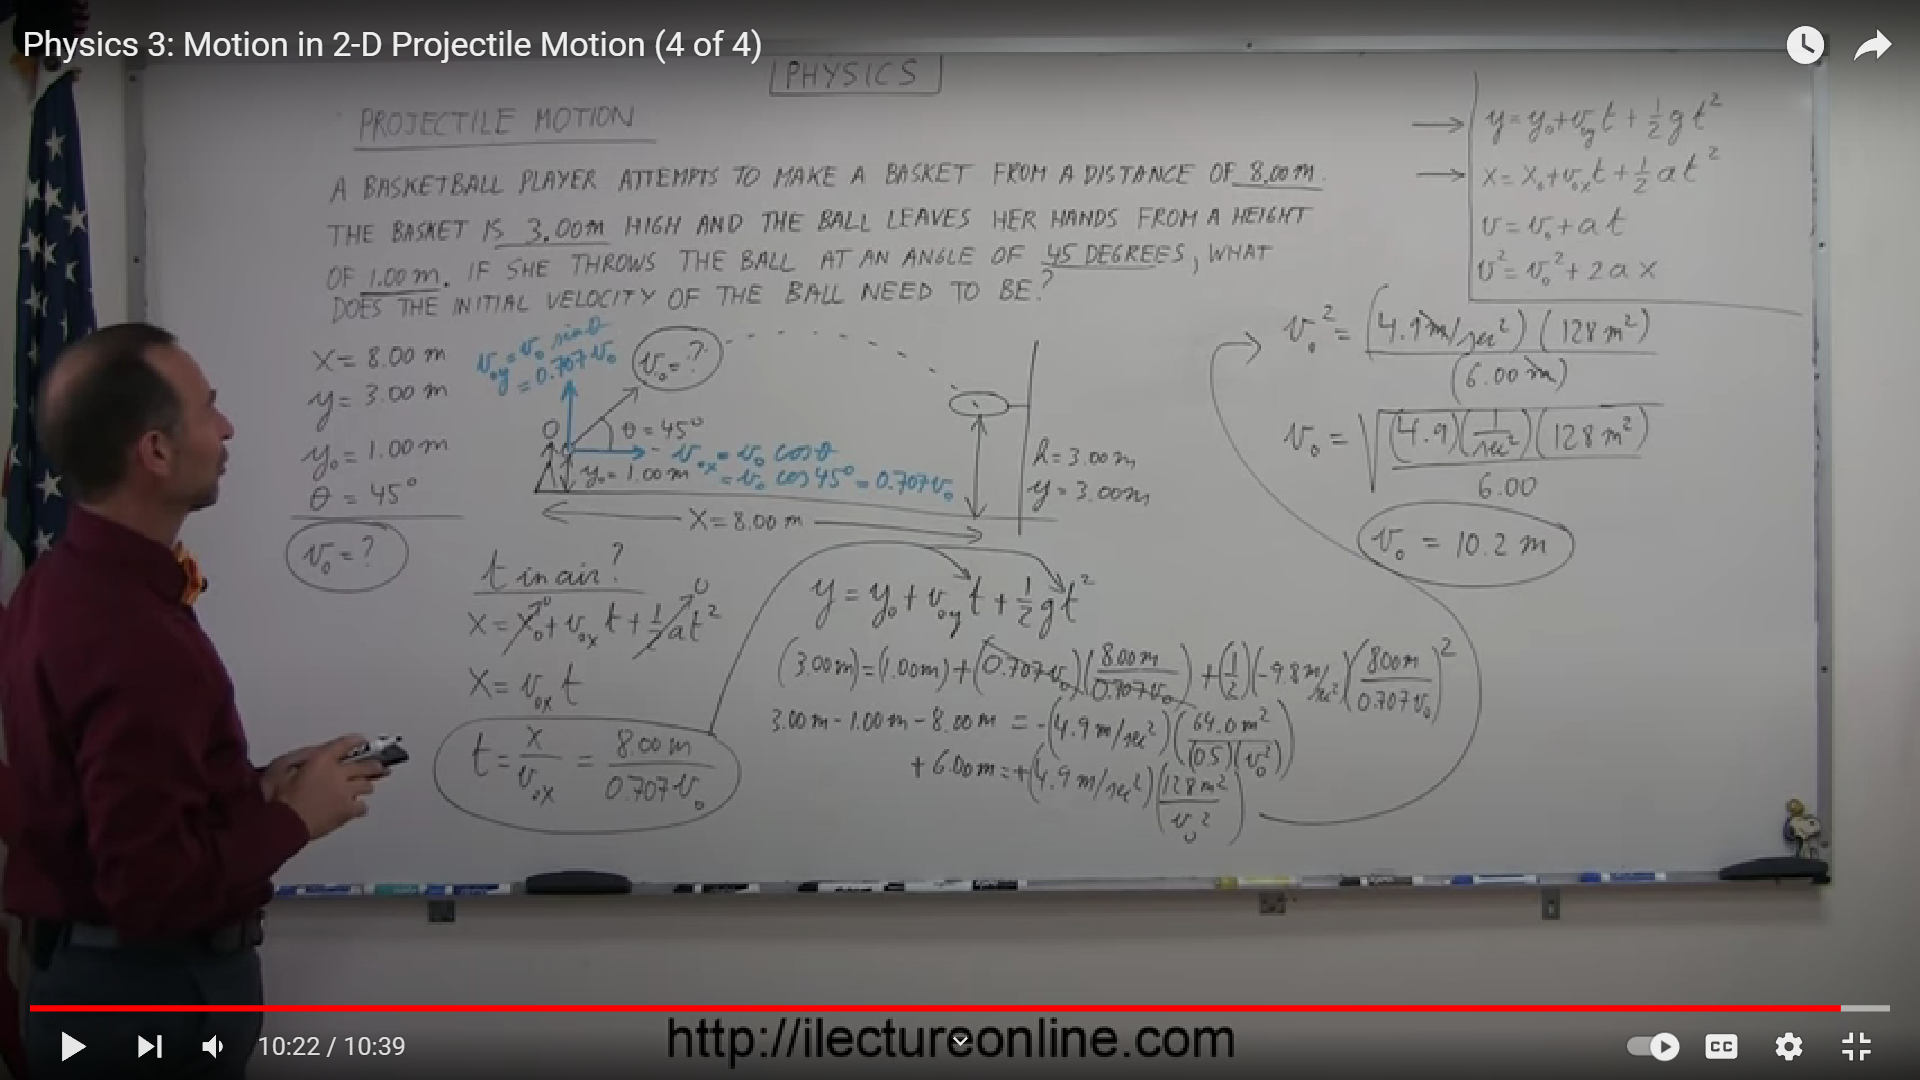 Physics 3: Motion in 2-D Projectile Motion (4 of 4)
PHYSICS
PROJECTILE MOTION
A BASKETBALL PLAYER ATTEMPTS TO MAKE A BASKET FROM A DISTANCE OF 8.00 m.
THE BASKET IS 3.00 m HIGH AND THE BALL LEAVES HER HANDS FROM A HEIGHT
OF 1.00 m. IF SHE THROWS THE BALL AT AN ANGLE OF 45 DEGREES, WHAT
DOES THE INITIAL VELOCITY OF THE BALL NEED TO BE?
y = y₀ + v₀y t + 1/2 g t²
x = x₀ + v₀x t + 1/2 a t²
v = v₀ + a t
v² = v₀² + 2 a x
x = 8.00 m
y = 3.00 m
y₀ = 1.00 m
θ = 45°
v₀ = ?
v₀y = v₀ sin θ
= 0.707 v₀
v₀ = ?
θ = 45°
v₀x = v₀ cos θ
= v₀ cos 45° = 0.707 v₀
y₀ = 1.00 m
x = 8.00 m
h = 3.00 m
y = 3.00 m
t in air?
x = x₀ + v₀x t + 1/2 a t²
0 0
x = v₀x t
t = x / v₀x = 8.00 m / 0.707 v₀
y = y₀ + v₀y t + 1/2 g t²
(3.00 m) = (1.00 m) + (0.707 v₀)(8.00 m / 0.707 v₀) + (1/2)(-9.8 m/sec²)(8.00 m / 0.707 v₀)²
3.00 m - 1.00 m - 8.00 m = -(4.9 m/sec²)(64.0 m² / (0.5)(v₀²))
+ 6.00 m = +(4.9 m/sec²)(128 m² / v₀²)
v₀² = (4.9 m/sec²)(128 m²) / (6.00 m)
v₀ = √((4.9)(1/sec²)(128 m²) / 6.00)
v₀ = 10.2 m
10:22 / 10:39
http://ilectureonline.com
CC